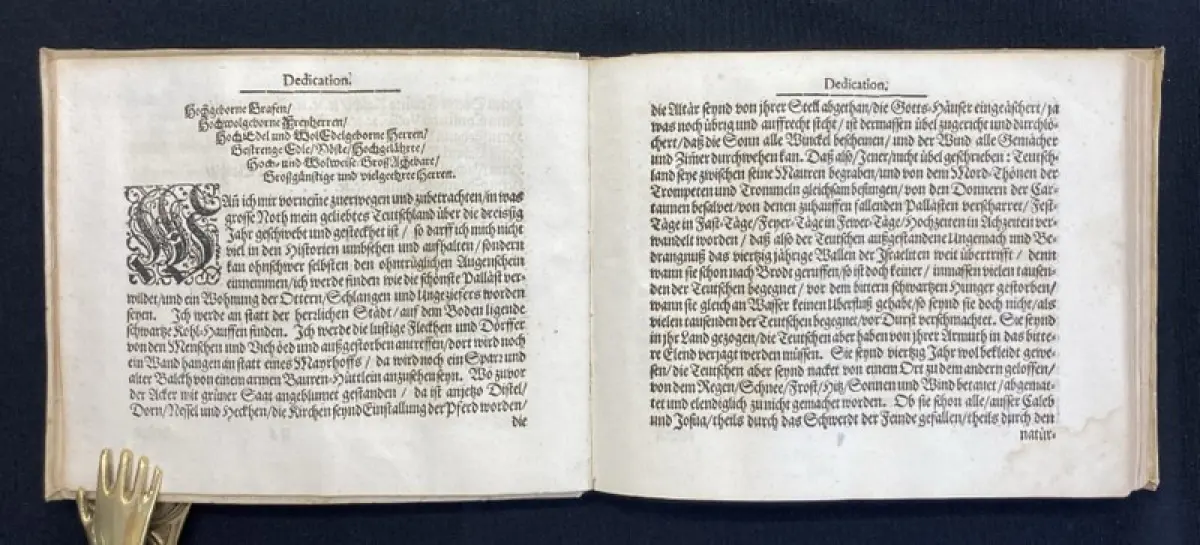 Dedication.
Hochgeborne Grafen/
Hochwolgeborne Freyherren/
Hoch-Edel und WolEdelgeborne Herren/
Gestrenge Edle/Veste/Hochgelährte/
Hoch- und Wolweise Groß Achtbare/
Großgünstige und vielgeehrte Herren.
WAñ ich mir vorneme zuerwegen und zubetrachten/in was
grosse Noth mein geliebtes Teutschland über die dreissig
Jahr geschwebt und gesteckhet ist / so darff ich mich nicht
viel in den Historien umbsehen und aufhalten/ sondern
kan ohnschwer selbsten den ohntrüglichen Augenschein
einnemmen/ich werde finden wie die schönste Palläst ver-
wildet/und ein Wohnung der Ottern/Schlangen und Ungeziefers worden
seyen. Ich werde an statt der herzlichen Städt/auf dem Boden ligende
schwartze Kohl-Hauffen finden. Ich werde die lustige Flecken und Dörffer
von den Menschen und Vich öed und außgestorben antreffen/dort wird noch
ein Wand hangen an statt eines Mayrhoffs / da wird noch ein Sparr und
alter Balckh von einem armen Bauren-Hüttlein anzusehen seyn. Wo zuvor
der Acker mit grüner Saat angeblumet gestanden / da ist anjetzo Distel/
Dorn/Nessel und Heckhen/die Kirchen seynd Einstallung der Pferd worden/
die
Dedication.
die Altär seynd von jhrer Stell abgethan/die Gotts-Häuser eingeäschert/ja
was noch übrig und auffrecht steht/ ist dermassen übel zugericht und durchlö-
chert/daß die Sonn alle Winckel bescheinen/ und der Wind alle Gemächer
und Zim̃er durchwehen kan. Daß also/Jener/nicht übel geschrieben: Teutsch-
land seye zwischen seine Mauren begraben/und von dem Mord-Thönen der
Trompeten und Trommeln gleichsam besungen/von den Donnern der Car-
taunen besalvet/von denen zuhauffen fallenden Pallästen verscharret/Fest-
Täge in Fast-Täge/Feyer-Täge in Fewer-Täge/Hochzeiten in Achzeiten ver-
wandelt worden / daß also der Teutschen außgestandene Ungemach und Be-
drangnuß das viertzig jährige Wallen der Israeliten weit übertrifft / denn
wann sie schon nach Brodt geruffen/so ist doch keiner / inmassen vielen tausen-
den der Teutschen begegnet / vor dem bittern schwartzen Hunger gestorben/
wann sie gleich an Wasser keinen Uberfluß gehabt/so seynd sie doch nicht/als
vielen tausenden der Teutschen begegnet/vor Durst verschmachtet. Sie seynd
in jhr Land gezogen/die Teutschen aber haben von jhrer Armuth in das bitte-
re Elend verjagt werden müssen. Sie seynd viertzig Jahr wol bekleidt gewe-
sen/die Teutschen aber seynd nacket von einem Ort zu dem andern geloffen/
von dem Regen/Schnee/Frost/Hitz/Sonnen und Wind abgemat-
tet und elendiglich zu nicht gemachet worden. Ob sie schon alle/ausser Caleb
und Josua/theils durch das Schwerdt der Feinde gefallen/theils durch den
natür-